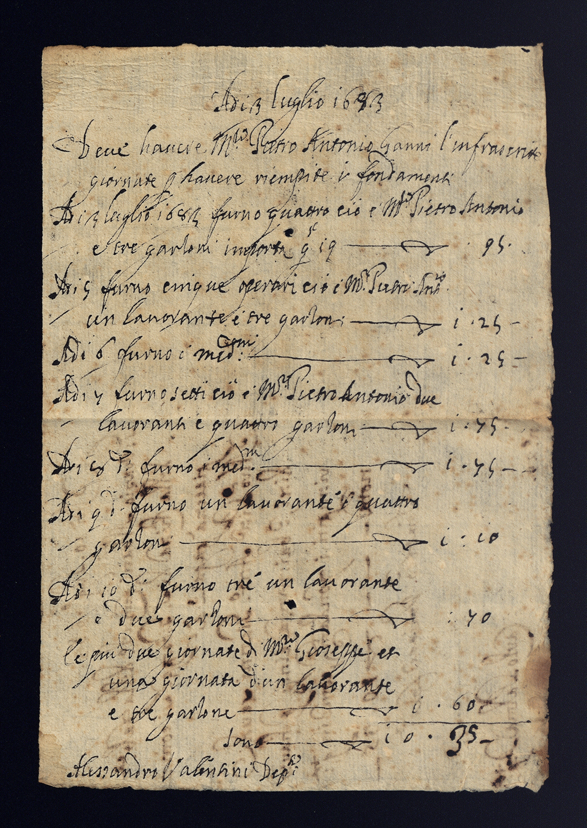 Adi 3 luglio 1683
Deve havere Mro Pietro Antonio Ganni l'infrascrite
giornate p havere riempite i fondamenti
Adi 3 luglio 1683 furno quattro cio è Mro Pietro Antonio
e tre garzoni importa 95
Adi 5 furno cinque operari cio è Mro Pietro Anto
un lavorante e tre garzoni 1 . 25
Adi 6 furno i medmi 1 . 25
Adi 7 furno setti cio è Mro Pietro Antonio due
lavoranti e quattro garzoni 1 . 75
Adi 8 do furno i medmi 1 . 75
Adi 9 do furno un lavorante e quattro
garzoni 1 . 10
Adi 10 do furno tre un lavorante
e due garzoni 70
le piu due giornate di Mro Gioseppe et
una giornata d'un lavorante
e tre garzone . 60
sono 10 . 35
Alessandro Valentini